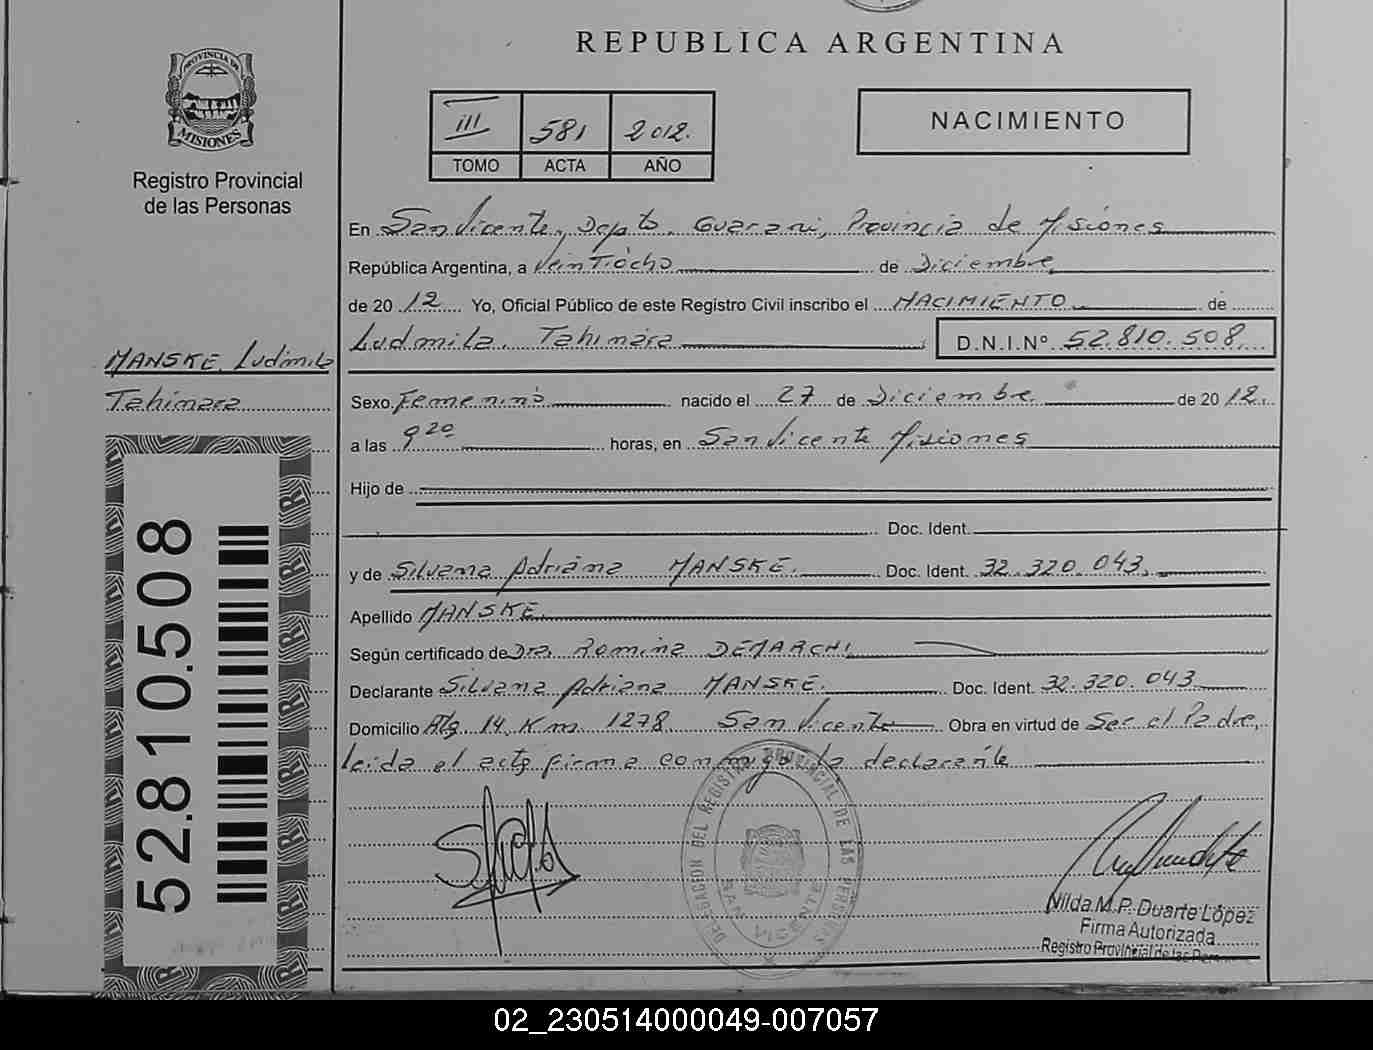 REPUBLICA ARGENTINA
PROVINCIA DE
MISIONES
Registro Provincial
de las Personas
III 581 2012.
TOMO ACTA AÑO
NACIMIENTO
En San Vicente, Depto. Guarani, Provincia de Misiones
República Argentina, a Veintiocho de Diciembre
de 20 12 Yo, Oficial Público de este Registro Civil inscribo el NACIMIENTO de
Ludmila Tahimara D.N.I.Nº 52.810.508
MANSKE Ludmila
Tahimara
Sexo Femenino nacido el 27 de Diciembre de 20 12.
a las 9 20 horas, en San Vicente Misiones
Hijo de
Doc. Ident.
y de Silvana Adriana MANSKE. Doc. Ident. 32.320.043
Apellido MANSKE
Según certificado de Dra. Romina DEMARCHI
Declarante Silvana Adriana MANSKE. Doc. Ident. 32.320.043
Domicilio 14 Km 1278 San Vicente Obra en virtud de Ser el Padre,
leida el acta firma conmigo la declarante
52.810.508
DELEGACION DEL REGISTRO PROVINCIAL DE LAS PERSONAS
SAN VICENTE
Nilda M.P. Duarte López
Firma Autorizada
Registro Provincial de las
02_230514000049-007057